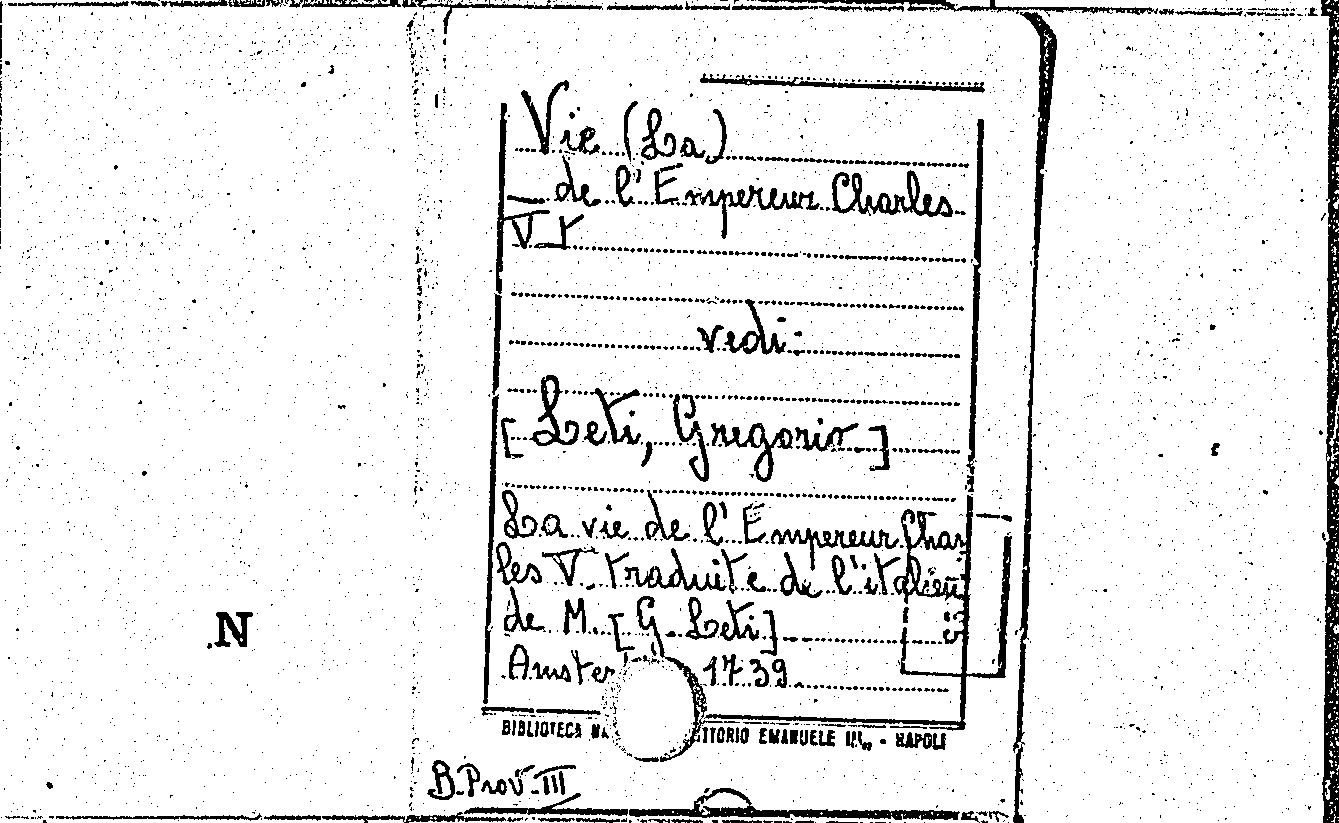 Vie (La)
— de l'Empereur Charles
V
vedi:
[Leti, Gregorio]
La vie de l'Empereur Char
les V traduite de l'italien
de M. [G. Leti]
Amster 1739.
BIBLIOTECA NA TTORIO EMANUELE III„ - NAPOLI
B. Prov. III
N